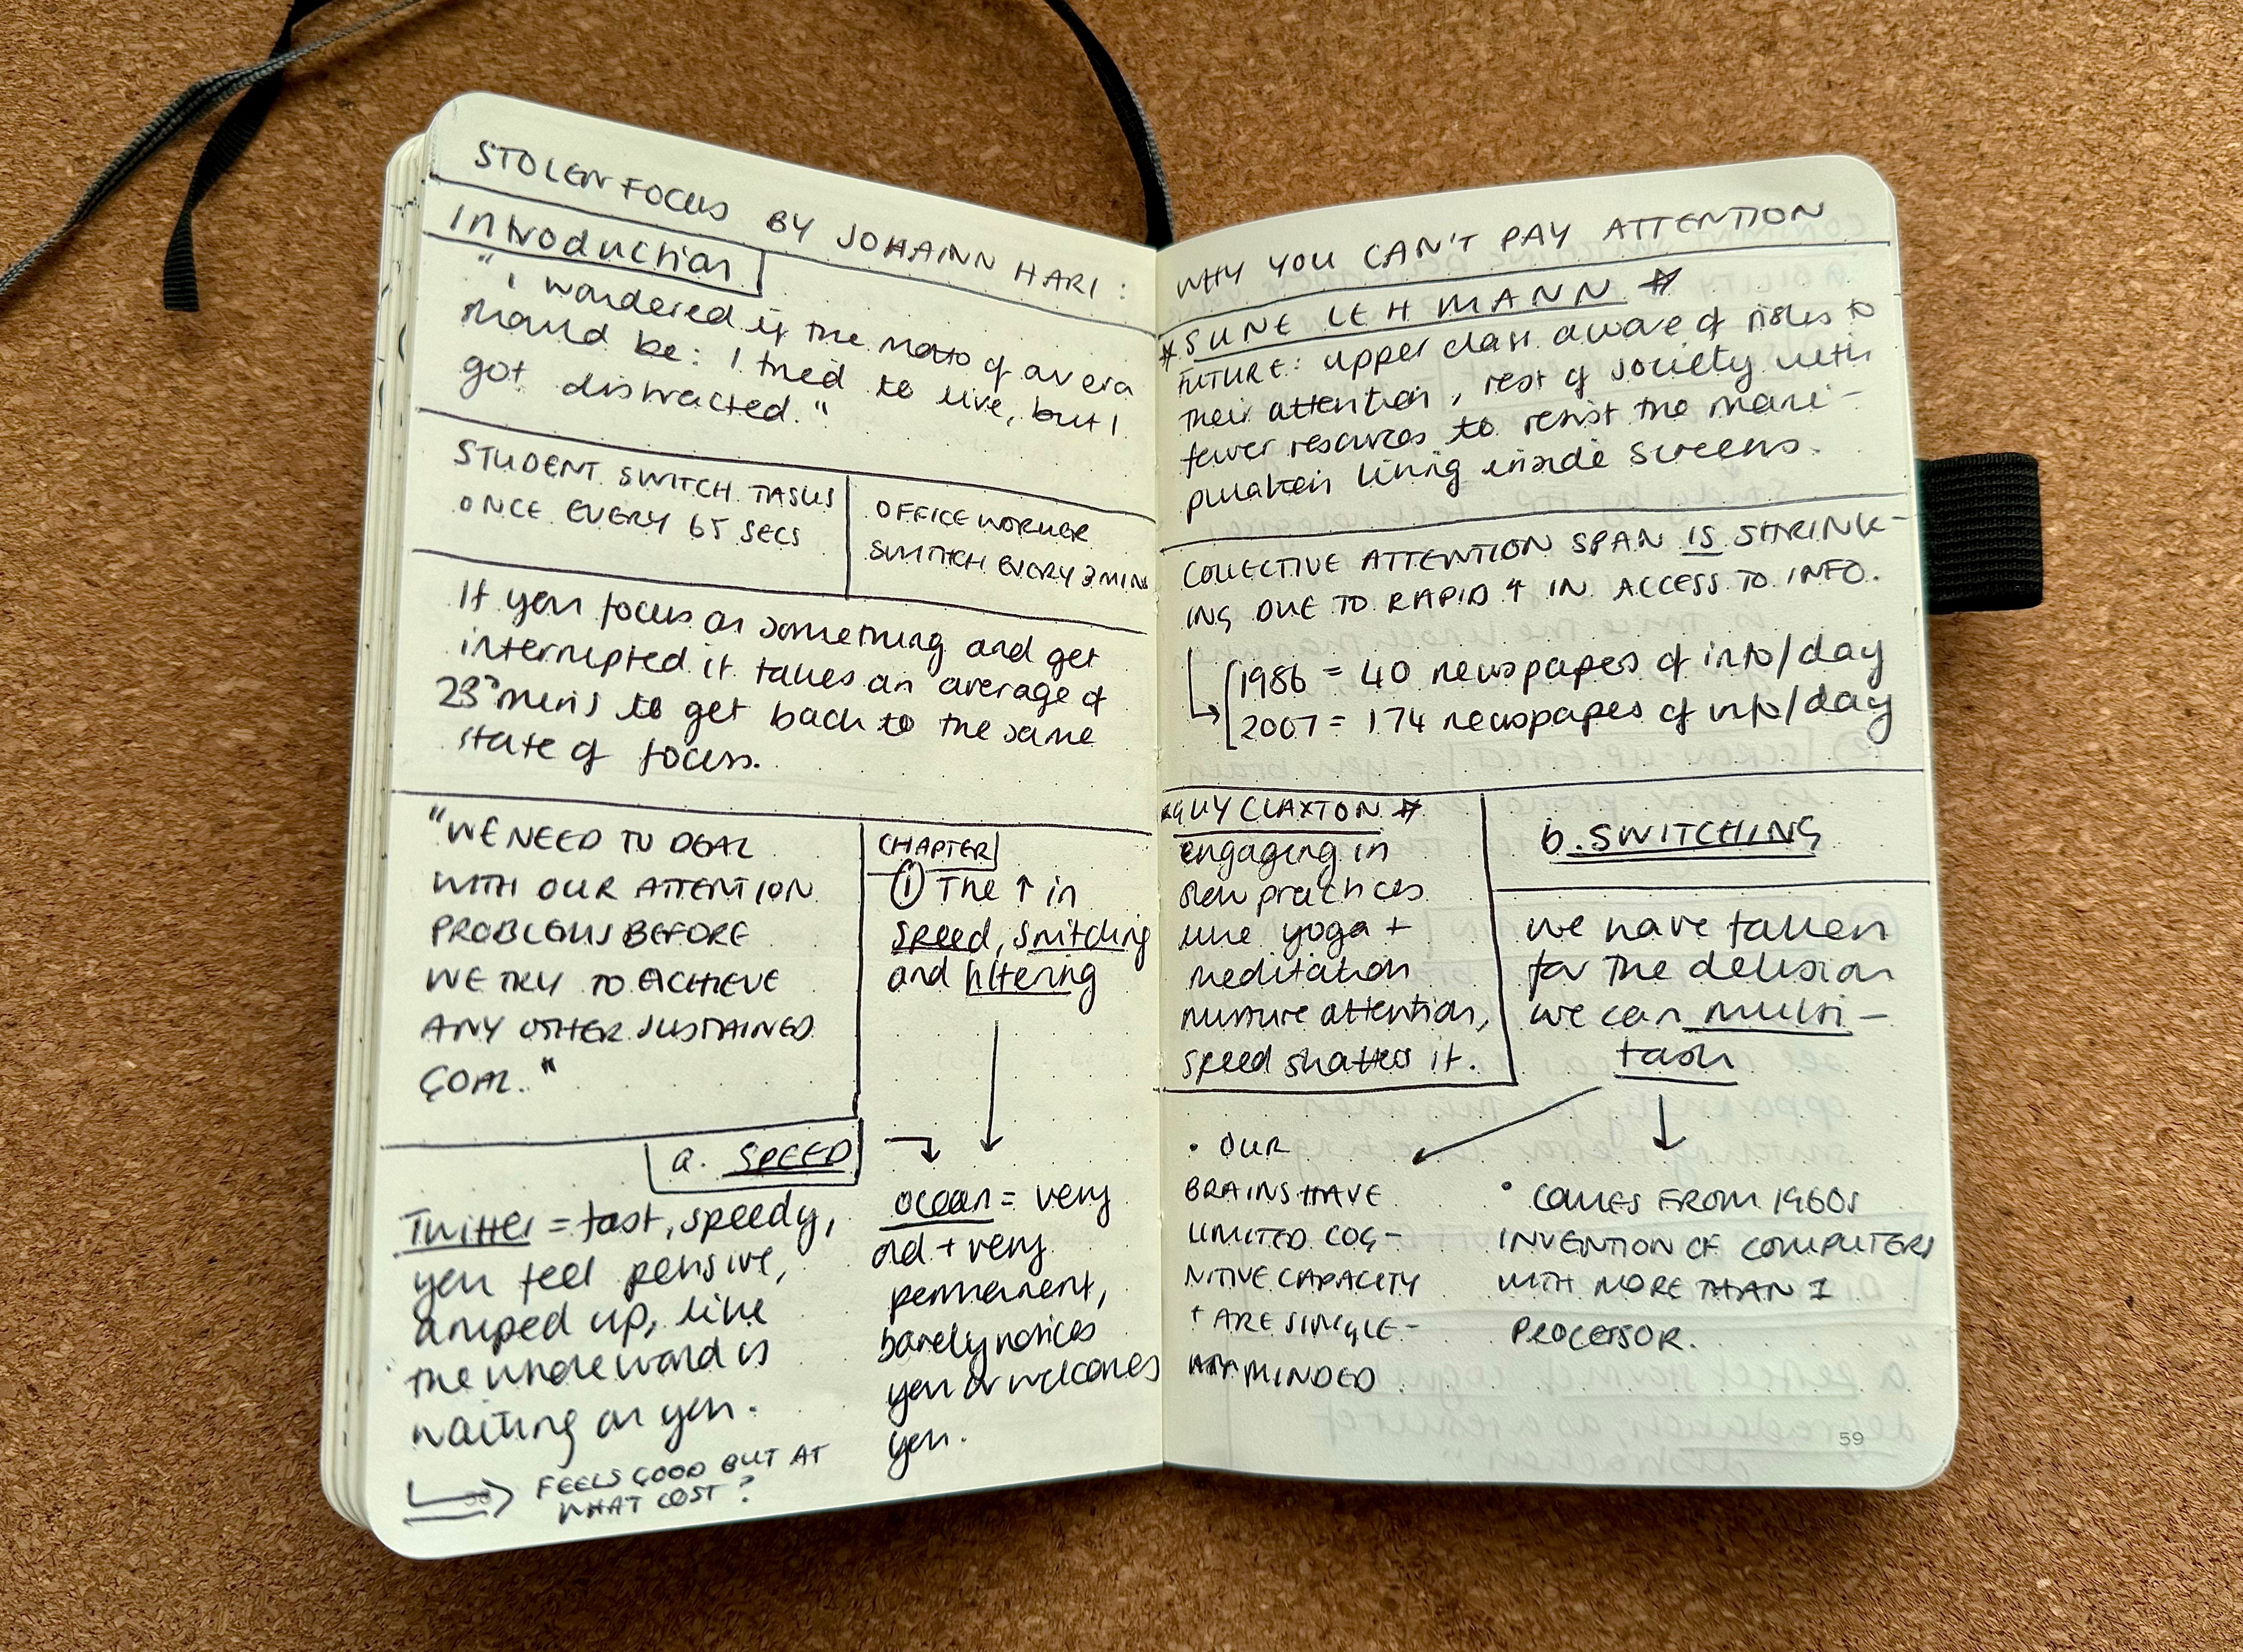 STOLEN FOCUS BY JOHANN HARI:
Introduction
"I wondered if the motto of our era
should be: I tried to live, but I
got distracted."
STUDENT SWITCH TASKS
ONCE EVERY 65 SECS
OFFICE WORKER
SWITCH EVERY 3 MINS
If you focus on something and get
interrupted it takes an average of
23 mins to get back to the same
state of focus.
"WE NEED TO DEAL
WITH OUR ATTENTION
PROBLEMS BEFORE
WE TRY TO ACHIEVE
ANY OTHER SUSTAINED
GOAL."
CHAPTER
① The ↑ in
speed, switching
and filtering
a. SPEED
Twitter = fast, speedy,
you feel pensive,
amped up, like
the whole world is
waiting on you.
FEELS GOOD BUT AT
WHAT COST?
ocean = very
old + very
permanent,
barely notices
you or welcomes
you.
WHY YOU CAN'T PAY ATTENTION
* SUNE LEHMANN *
FUTURE: upper class aware of risks to
their attention, rest of society with
fewer resources to resist the mani-
pulation living inside screens.
COLLECTIVE ATTENTION SPAN IS SHRINK-
ING DUE TO RAPID ↑ IN ACCESS TO INFO.
1986 = 40 newspapes of info/day
2007 = 174 newspapes of info/day
*GUY CLAXTON *
engaging in
slow practices
like yoga +
meditation
nurture attention,
speed shatters it.
b. SWITCHING
we have fallen
for the delusion
we can multi-
task
• OUR
BRAINS HAVE
LIMITED COG-
NITIVE CAPACITY
+ ARE SINGLE-
MINDED
• COMES FROM 1960S
INVENTION OF COMPUTERS
WITH MORE THAN 1
PROCESSOR.
59